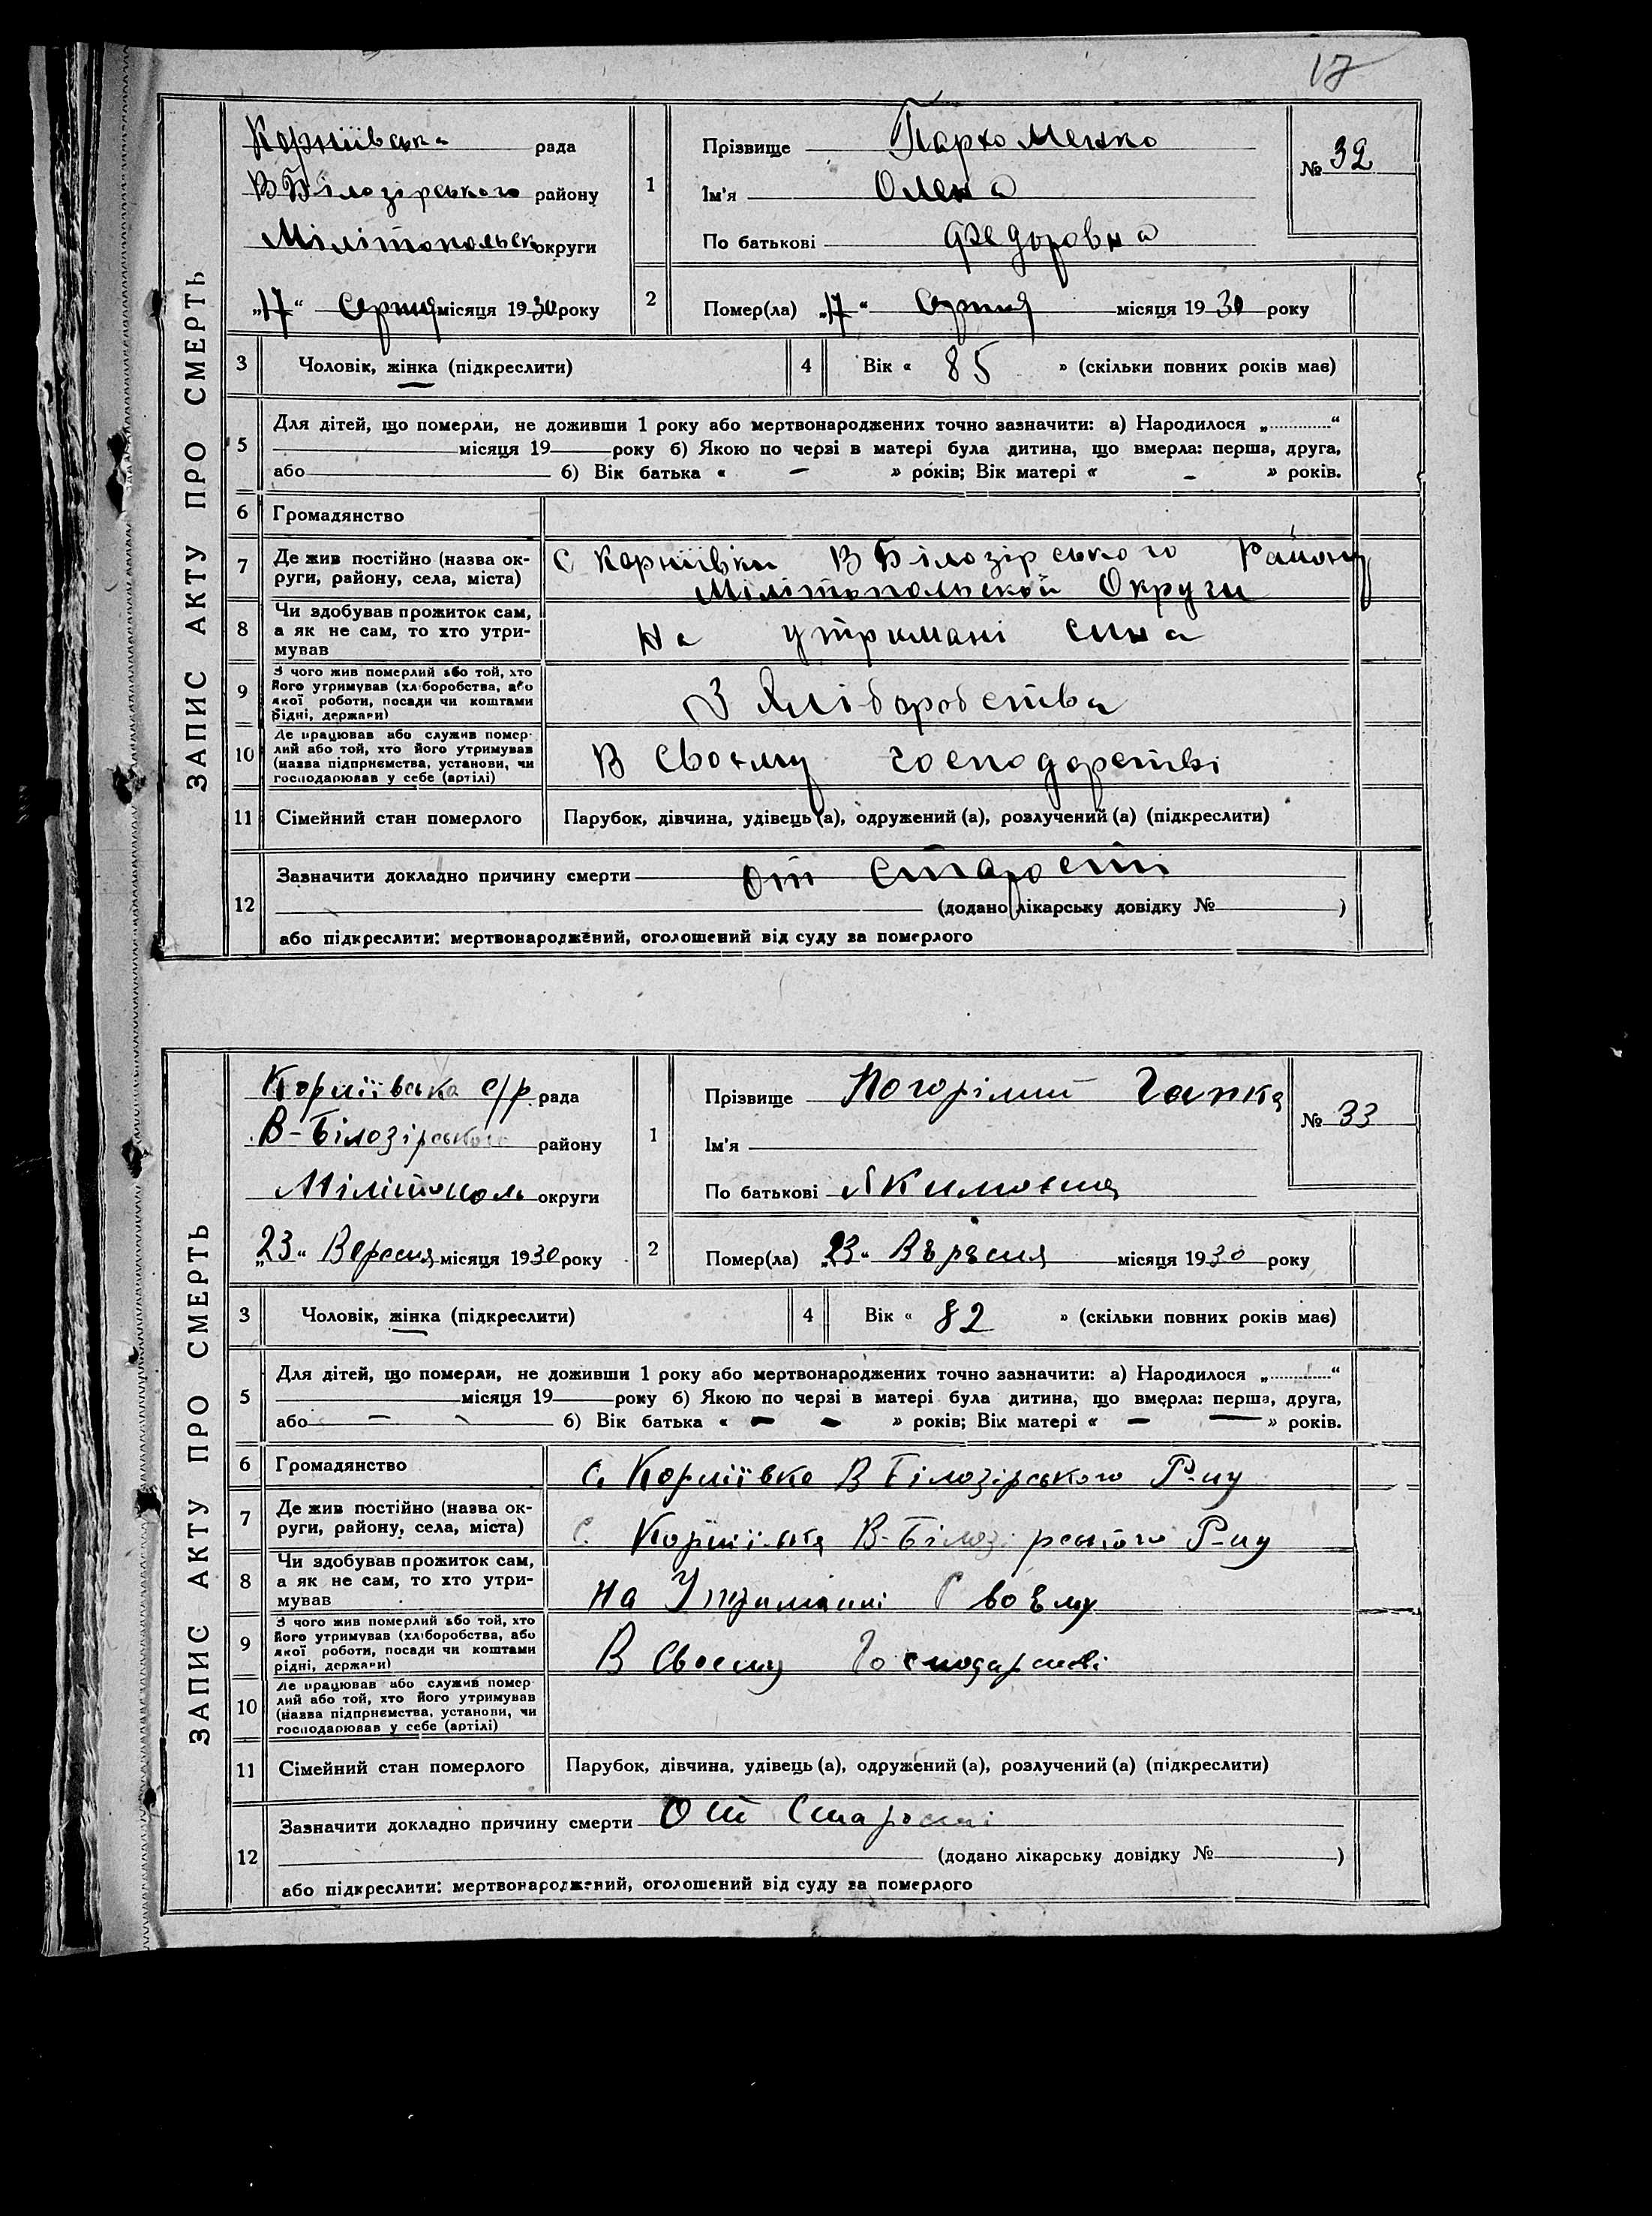 17
ЗАПИС АКТУ ПРО СМЕРТЬ
Корніївська рада
В Білозірського району
Мілітопольск округи
„17“ Серпня місяця 1930 року
1
Прізвище Пархоменко
Ім'я Олена
По батькові Федоровна
№ 32
2
Помер(ла) „17“ Серпня місяця 1930 року
3 Чоловік, жінка (підкреслити)
4 Вік « 85 » (скільки повних років має)
5
Для дітей, що померли, не доживши 1 року або мертвонароджених точно зазначити: а) Народилося „............“
місяця 19 року б) Якою по черзі в матері була дитина, що вмерла: перша, друга,
або б) Вік батька « – » років; Вік матері « – » років.
6 Громадянство
7
Де жив постійно (назва ок-
руги, району, села, міста)
С Корніївки В Білозірського Району
Мілітопольской Округи
8
Чи здобував прожиток сам,
а як не сам, то хто утри-
мував
На утримані сина
9
З чого жив померлий або той, хто
його утримував (хліборобства, або
якої роботи, посади чи коштами
рідні, держави)
З Хліборобства
10
Де працював або служив помер-
лий або той, хто його утримував
(назва підприємства, установи, чи
господарював у себе (артілі)
В Своєму господарстві
11 Сімейний стан померлого
Парубок, дівчина, удівець (а), одружений (а), розлучений (а) (підкреслити)
12
Зазначити докладно причину смерти От Старости
(додано лікарську довідку № )
або підкреслити: мертвонароджений, оголошений від суду за померлого
ЗАПИС АКТУ ПРО СМЕРТЬ
Корніївська с/р. рада
В-Білозірського району
Мілітополь округи
„23“ Вересня місяця 1930 року
1
Прізвище Погорілий
Ім'я
По батькові
№ 33
2
Помер(ла) „23“ Вересня місяця 1930 року
3 Чоловік, жінка (підкреслити)
4 Вік « 82 » (скільки повних років має)
5
Для дітей, що померли, не доживши 1 року або мертвонароджених точно зазначити: а) Народилося „............“
місяця 19 року б) Якою по черзі в матері була дитина, що вмерла: перша, друга,
або – – б) Вік батька « – – » років; Вік матері « – – » років.
6 Громадянство
С Корніївка В Білозірського Р-ну
7
Де жив постійно (назва ок-
руги, району, села, міста)
С. Корніївка В-Білозірского Р-ну
8
Чи здобував прожиток сам,
а як не сам, то хто утри-
мував
На Утриманні Своєму
9
З чого жив померлий або той, хто
його утримував (хліборобства, або
якої роботи, посади чи коштами
рідні, держави)
В Своєму Господарстві
10
Де працював або служив помер-
лий або той, хто його утримував
(назва підприємства, установи, чи
господарював у себе (артілі)
11 Сімейний стан померлого
Парубок, дівчина, удівець (а), одружений (а), розлучений (а) (підкреслити)
12
Зазначити докладно причину смерти От Старості
(додано лікарську довідку № )
або підкреслити: мертвонароджений, оголошений від суду за померлого